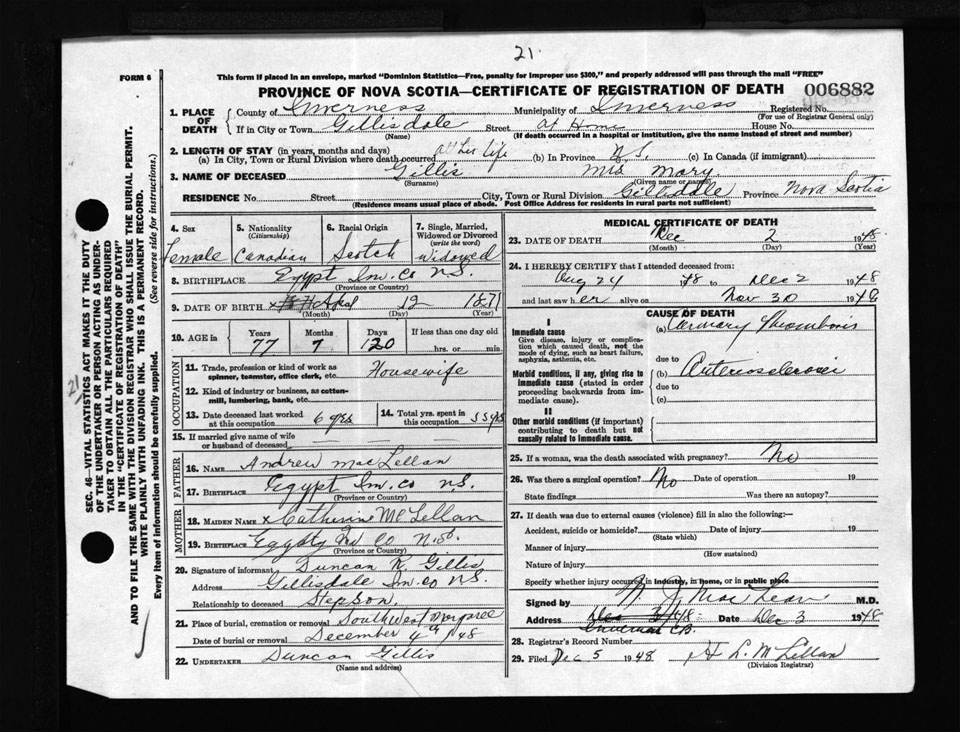 21
FORM 6
This form if placed in an envelope, marked "Dominion Statistics—Free, penalty for improper use $300," and properly addressed will pass through the mail "FREE"
PROVINCE OF NOVA SCOTIA—CERTIFICATE OF REGISTRATION OF DEATH 006882
1. PLACE OF DEATH County of Inverness Municipality of Inverness Registered No.
(For use of Registrar General only)
If in City or Town Gillisdale Street At Home House No.
(Name) (If death occurred in a hospital or institution, give the name instead of street and number)
2. LENGTH OF STAY (in years, months and days)
(a) In City, Town or Rural Division where death occurred all her life (b) In Province N.S. (c) In Canada (if immigrant)
3. NAME OF DECEASED Gillis Mrs Mary
(Surname) (Given name or names)
RESIDENCE No. Street City, Town or Rural Division Gillisdale Province Nova Scotia
(Residence means usual place of abode. Post Office Address for residents in rural parts not sufficient)
4. Sex 5. Nationality (Citizenship) 6. Racial Origin 7. Single, Married, Widowed or Divorced (write the word)
Female Canadian Scotch Widowed
8. BIRTHPLACE Egypt Inv. Co N.S.
(Province or Country)
9. DATE OF BIRTH x Apl 12 1871
(Month) (Day) (Year)
10. AGE in Years Months Days If less than one day old
77 7 120 hrs. or min.
OCCUPATION
11. Trade, profession or kind of work as spinner, teamster, office clerk, etc. Housewife
12. Kind of industry or business, as cotton-mill, lumbering, bank, etc.
13. Date deceased last worked at this occupation 6 yrs 14. Total yrs. spent in this occupation 55 yrs
15. If married give name of wife or husband of deceased
FATHER
16. NAME Andrew MacLellan
17. BIRTHPLACE Egypt Inv. Co N.S.
(Province or Country)
MOTHER
18. MAIDEN NAME x Catherine McLellan
19. BIRTHPLACE Egypt Co N.S.
(Province or Country)
20. Signature of informant Duncan R. Gillis
Address Gillisdale Inv. Co N.S.
Relationship to deceased Stepson.
21. Place of burial, cremation or removal South West Margaree
Date of burial or removal December 4th /48
22. UNDERTAKER Duncan Gillis
(Name and address)
MEDICAL CERTIFICATE OF DEATH
23. DATE OF DEATH Dec 2 1948
(Month) (Day) (Year)
24. I HEREBY CERTIFY that I attended deceased from:
Aug 24 1948 to Dec 2 1948
and last saw her alive on Nov 30 1948
CAUSE OF DEATH
I
Immediate cause
Give disease, injury or complication which caused death, not the mode of dying, such as heart failure, asphyxia, asthenia, etc.
(a) Coronary Thrombosis
due to
Morbid conditions, if any, giving rise to immediate cause (stated in order proceeding backwards from immediate cause).
(b) Arteriosclerosis
due to
(c)
II
Other morbid conditions (if important) contributing to death but not causally related to immediate cause.
25. If a woman, was the death associated with pregnancy? No
26. Was there a surgical operation? No Date of operation 19
State findings Was there an autopsy?
27. If death was due to external causes (violence) fill in also the following:—
Accident, suicide or homicide? Date of injury 19
(State which)
Manner of injury
(How sustained)
Nature of injury
Specify whether injury occurred in industry, in home, or in public place
Signed by MacLean M.D.
Address Date Dec 3 1948
28. Registrar's Record Number
29. Filed Dec 5 1948 H L. McLellan
(Division Registrar)
SEC. 46—VITAL STATISTICS ACT MAKES IT THE DUTY
OF THE UNDERTAKER OR PERSON ACTING AS UNDERTAKER
TO OBTAIN ALL THE PARTICULARS REQUIRED
IN THE "CERTIFICATE OF REGISTRATION OF DEATH"
AND TO FILE THE SAME WITH THE DIVISION REGISTRAR WHO SHALL ISSUE THE BURIAL PERMIT.
WRITE PLAINLY WITH UNFADING INK. THIS IS A PERMANENT RECORD.
Every item of information should be carefully supplied. (See reverse side for instructions.)
21